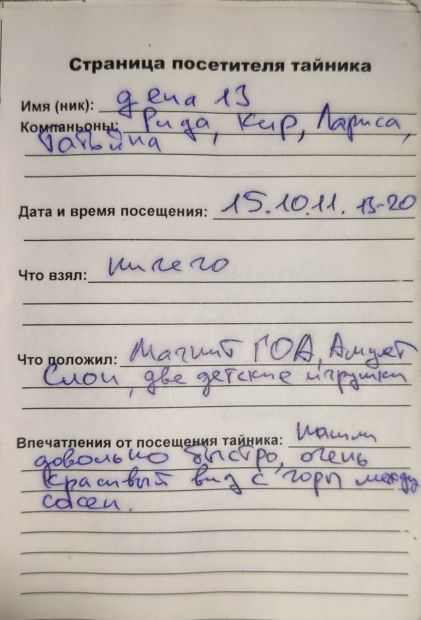 Страница посетителя тайника
Имя (ник): дена 13
Компаньоны: Рида, Кир, Лариса,
Татьяна
Дата и время посещения: 15.10.11. 13-20
Что взял: ничего
Что положил: Магнит ГОА, Амулет
Слон, две детские игрушки
Впечатления от посещения тайника: Нашли
довольно быстро, очень
красивый вид с горы между
сосен.